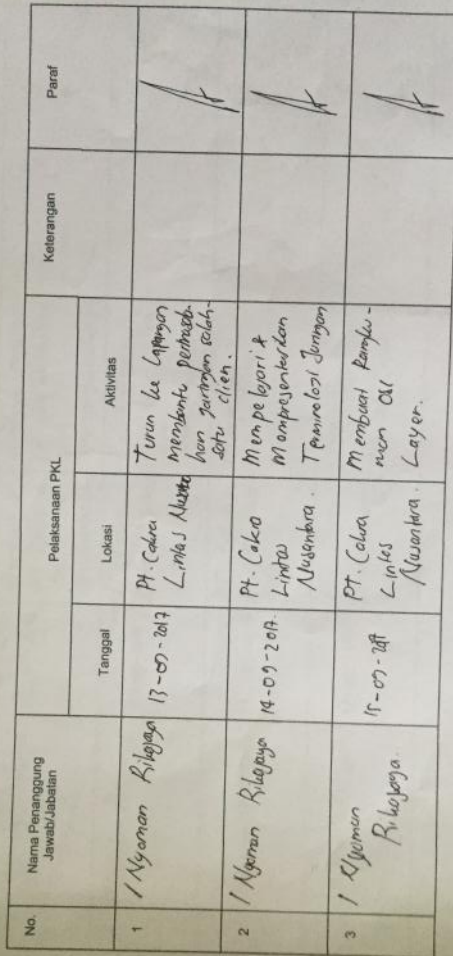 No.
Nama Penanggung
Jawab/Jabatan
Pelaksanaan PKL
Keterangan
Paraf
Tanggal
Lokasi
Aktivitas
1
I Nyoman Rikajaya
13-09-2017
Pt. Cakra
Lintas
Turun ke lapangan
membantu permasala-
han jaringan salah-
satu clien.
2
I Nyoman Rikajaya
14-09-2017.
Pt. Cakra
Lintas
Nusantara.
Mempelajari &
Mempresentasikan
Terminologi Jaringan
3
I Nyoman
Rikajaya.
15-09-2017
PT. Cakra
Lintas
Nusantara.
Membuat Rangku-
man
Layer.